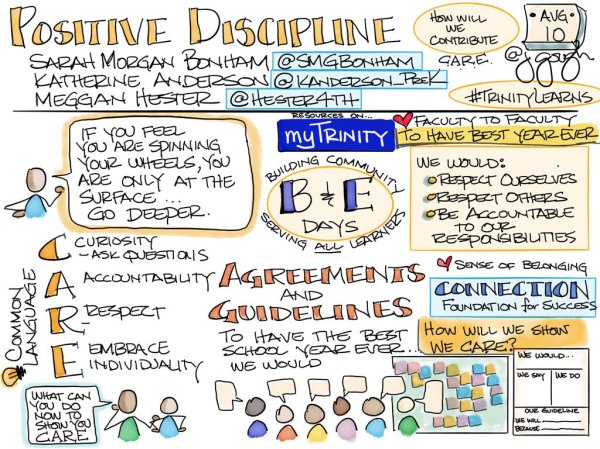 POSITIVE DISCIPLINE
SARAH MORGAN BONHAM @SMGBONHAM
KATHERINE ANDERSON @KANDERSON_PREK
MEGGAN HESTER @HESTER4TH
HOW WILL
WE
CONTRIBUTE
CARE.
AUG.
10
@jgough
#TRINITYLEARNS
RESOURCES ON...
myTRINITY
FACULTY TO FACULTY
TO HAVE BEST YEAR EVER
IF YOU FEEL
YOU ARE SPINNING
YOUR WHEELS, YOU
ARE ONLY AT THE
SURFACE ...
GO DEEPER.
BUILDING COMMUNITY
B & E
DAYS
SERVING ALL LEARNERS
WE WOULD:
RESPECT OURSELVES
RESPECT OTHERS
BE ACCOUNTABLE
TO OUR
RESPONSIBILITIES
COMMON
LANGUAGE
CARE
CURIOSITY
- ASK QUESTIONS
ACCOUNTABILITY
RESPECT
EMBRACE
INDIVIDUALITY
WHAT CAN
YOU DO
NOW TO
SHOW YOU
CARE
AGREEMENTS
AND
GUIDELINES
TO HAVE THE BEST
SCHOOL YEAR EVER...
WE WOULD
SENSE OF BELONGING
CONNECTION
FOUNDATION FOR SUCCESS
HOW WILL WE SHOW
WE CARE?
WE WOULD...
WE SAY
WE DO
OUR GUIDELINE
WE WILL
BECAUSE